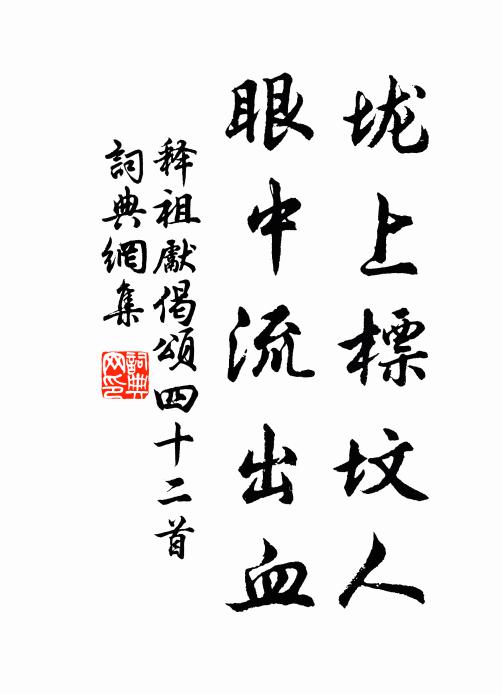 垅上標坟人
眼中流出血
释祖獻偈頌四十二首
詞典網集
詞典网印